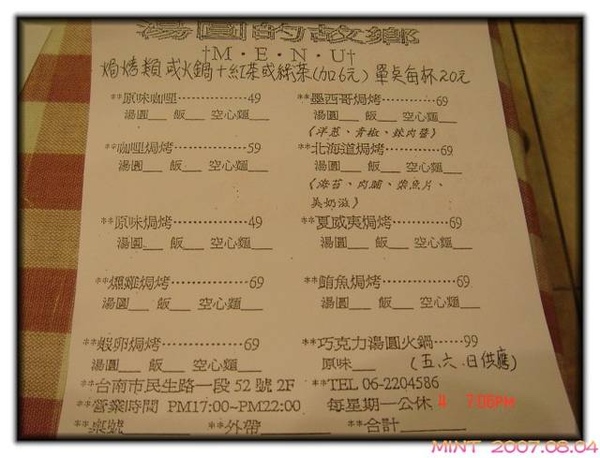 湯圓的故鄉
†M·E·N·U†
焗烤類或火鍋+紅茶或綠茶(加6元) 單点每杯20元
**原味咖哩············49 **墨西哥焗烤············69
湯圓__ 飯__ 空心麵__ 湯圓__ 飯__ 空心麵__
(洋蔥、青椒、辣肉醬)
**咖哩焗烤············59 **北海道焗烤············69
湯圓__ 飯__ 空心麵__ 湯圓__ 飯__ 空心麵__
(海苔、肉鬆、柴魚片、
美奶滋)
**原味焗烤············49 **夏威夷焗烤············69
湯圓__ 飯__ 空心麵__ 湯圓__ 飯__ 空心麵__
**燻雞焗烤············69 **鮪魚焗烤············69
湯圓__ 飯__ 空心麵__ 湯圓__ 飯__ 空心麵__
**蝦卵焗烤············69 **巧克力湯圓火鍋······99
湯圓__ 飯__ 空心麵__ 原味__ (五、六、日供應)
**台南市民生路一段 52 號 2F **TEL 06-2204586
**營業時間 PM17:00~PM22:00 每星期一公休
**桌號________**外帶________**合計________
7:06PM
MINT 2007.08.04